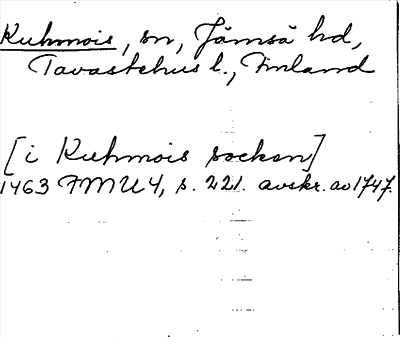 Kuhmois, sn, Jämsä hd,
Tavastehus l., Finland
[i Kuhmois socken]
1463 FMU 4, s. 221. avskr. av 1747.